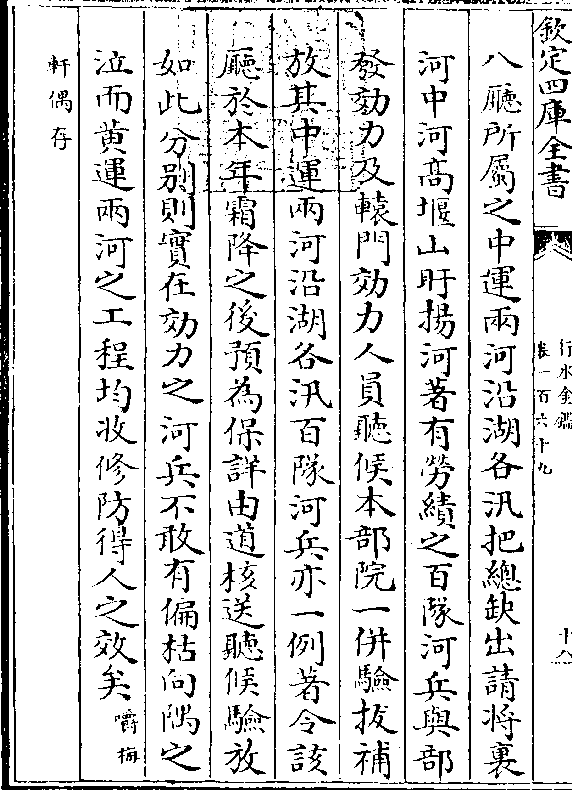 欽定四庫全書
行水金鑑
卷一百六十九
十八
八廳所屬之中運兩河沿湖各汛把總缺出請將裏
河中河高堰山盱揚河著有勞績之百隊河兵與部
發効力及轅門効力人員聽候本部院一併驗拔補
放其中運兩河沿湖各汛百隊河兵亦一例著令該
廳於本年霜降之後預為保詳由道核送聽候驗放
如此分別則實在効力之河兵不敢有偏枯向隅之
泣而黄運兩河之工程均收修防得人之效矣嚼梅
軒偶存